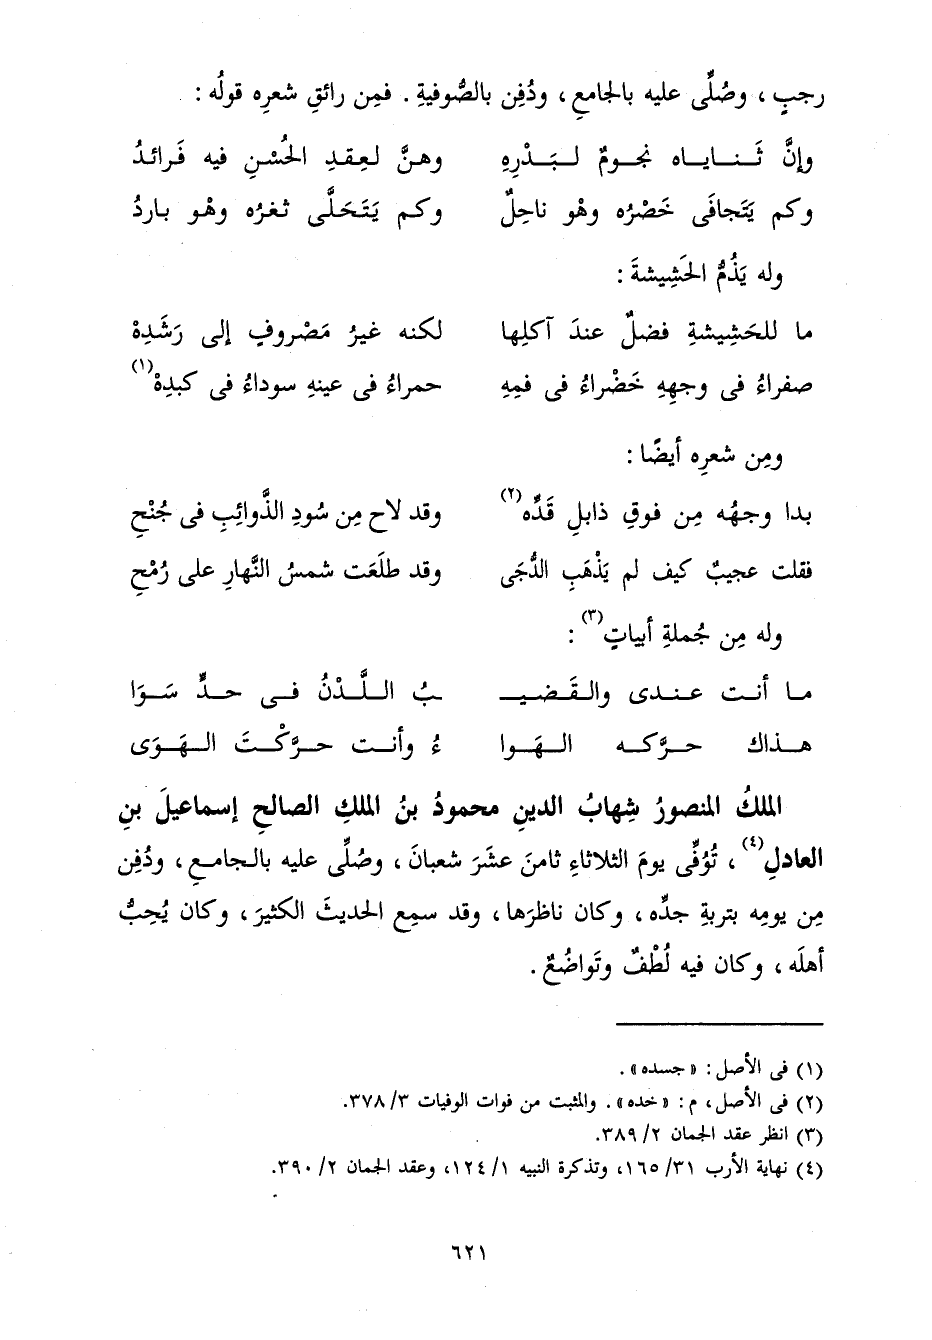 رجبٍ ، وصُلِّى عليه بالجامعِ ، ودُفِن بالصُّوفيةِ . فمِن رائقِ شعرِه قولُه :
وإنَّ ثَنـايـاه نجـومٌ لبَـدْرِهِ وهنَّ لعِقدِ الحُسْنِ فيه فَرائدُ
وكم يَتَجافَى خَصْرُه وهْو ناحِلٌ وكم يَتَحَلَّى ثغرُه وهْو باردُ
وله يَذُمُّ الحَشِيشةَ :
ما للحَشِيشةِ فضلٌ عندَ آكلِها لكنه غيرُ مَصْروفٍ إلى رَشَدِهْ
صفراءُ فى وجهِهِ خَضْراءُ فى فمِهِ حمراءُ فى عينِهِ سوداءُ فى كبدِهْ(١)
ومِن شعرِه أيضًا :
بدا وجهُه مِن فوقِ ذابلِ قَدِّه(٢) وقد لاح مِن سُودِ الذَّوائبِ فى جُنْحِ
فقلت عجيبٌ كيف لم يَذْهَبِ الدُّجَى وقد طلَعَت شمسُ النَّهارِ على رُمْحِ
وله مِن جُملةِ أبياتٍ(٣) :
مـا أنـت عـنـدى والقَـضيـ ـبُ اللَّـدْنُ فـى حـدٍّ سَـوَا
هـذاك حـرَّكـه الـهَـوا ءُ وأنـت حـرَّكْـتَ الـهَـوَى
الملكُ المنصورُ شِهابُ الدينِ محمودُ بنُ الملكِ الصالحِ إسماعيلَ بنِ
العادلِ(٤) ، تُوُفِّى يومَ الثلاثاءِ ثامنَ عشَرَ شعبانَ ، وصُلِّى عليه بالجامعِ ، ودُفِن
مِن يومِه بتربةِ جدِّه ، وكان ناظرَها ، وقد سمِع الحديثَ الكثيرَ ، وكان يُحِبُّ
أهلَه ، وكان فيه لُطْفٌ وتَواضُعٌ .
(١) فى الأصل : « جسده » .
(٢) فى الأصل ، م : « خده » . والمثبت من فوات الوفيات ٣/ ٣٧٨.
(٣) انظر عقد الجمان ٢/ ٣٨٩.
(٤) نهاية الأرب ٣١/ ١٦٥، وتذكرة النبيه ١/ ١٢٤، وعقد الجمان ٢/ ٣٩٠.
٦٢١